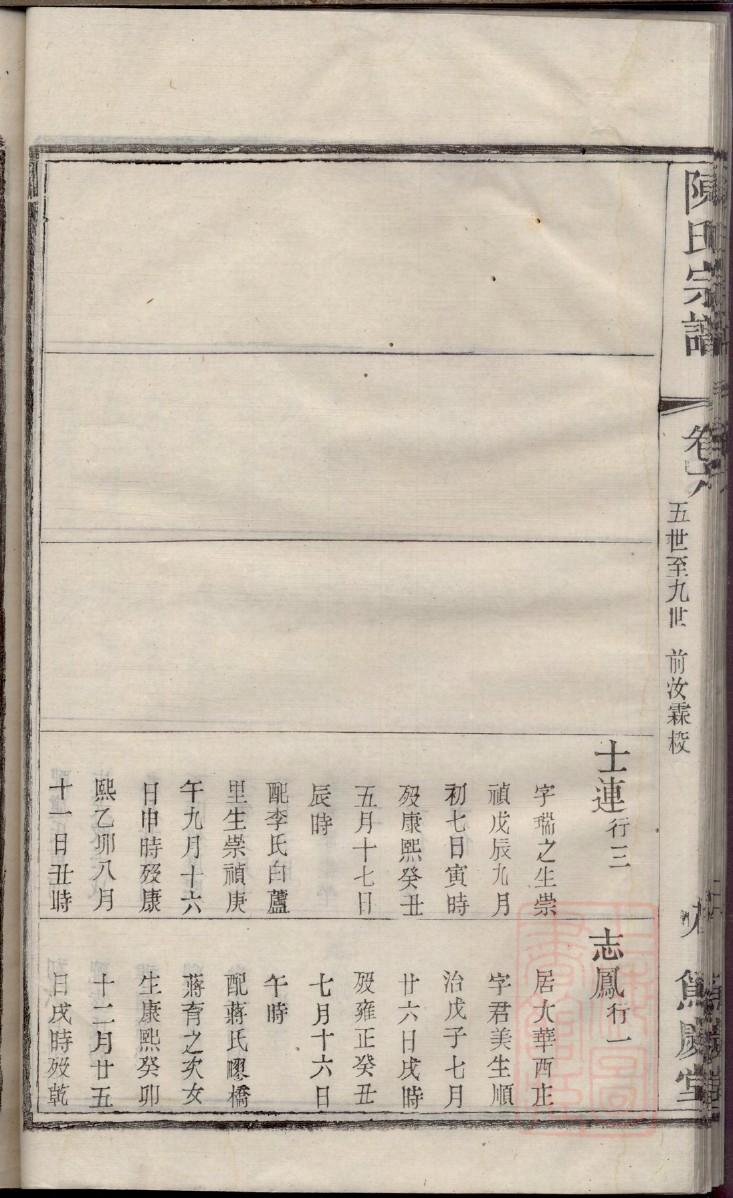 陳氏宗譜
卷六
五世至九世 前汝霖校
士連行三
字瑞之生崇
禎戊辰九月
初七日寅時
歿康熙癸丑
五月十七日
辰時
配李氏白蘆
里生崇禎庚
午九月十六
日申時歿康
熙乙卯八月
十一日丑時
志鳳行一
居大華西庄
字君美生順
治戊子七月
廿六日戌時
歿雍正癸丑
七月十六日
午時
配蔣氏橋
蔣育之次女
生康熙癸卯
十二月廿五
日戌時歿乾